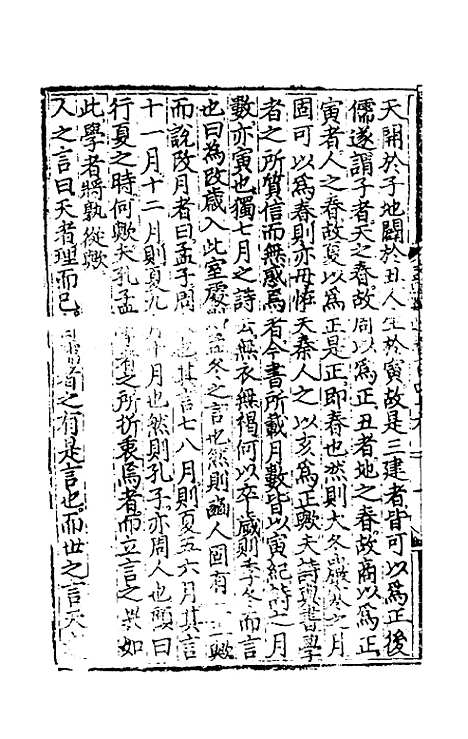 天開於子地闢於丑人生於寅故是三建者皆可以爲正後
儒遂謂子者天之春故周以爲正丑者地之春故商以爲正
寅者人之春故夏以爲正是正即春也然則大冬嚴寒之月
固可以爲春則亦毋恠夫秦人之以亥爲正歟夫詩與書學
者之所質信而無惑焉者今書所載月數皆以寅紀詩之月
數亦寅也獨七月之詩云無衣無褐何以卒歲則季冬而言
也曰為改歲入此室處 孟冬之言也然則豳人固有 歟
而說改月者曰孟子周 也其言七八月則夏五六月其言
十一月十二月則夏九 十月也然則孔子亦周人也顧曰
行夏之時何歟夫孔孟 學者之所折衷焉者而立言之 如
此學者將孰從歟
人之言曰天者理而已 儒者之有是言也而世之言天